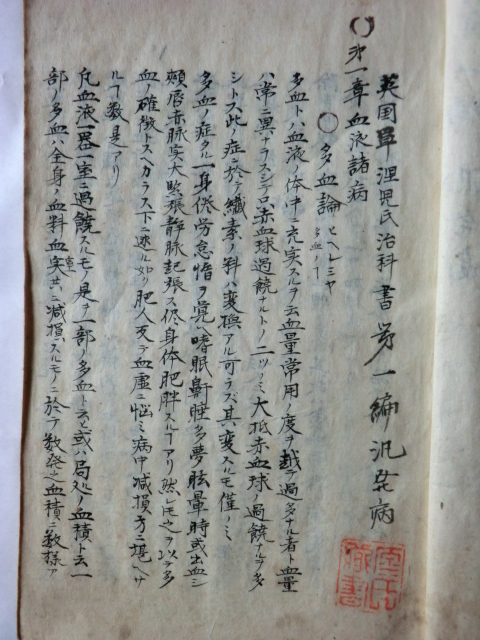 英国単涅児氏治科書第一編汎発病
○第一章血液諸病
○多血論 ヒペレミヤ 多血ノ丁
多血トハ血液ノ体中ニ充実スルヲ云血量常用ノ度ヲ越テ過多ナル者ト血量
ハ常ニ異ナラスシテ只赤血球過饒ナルトノ二ツノミ大抵赤血球ノ過饒ナルヲ多
シトス此ノ症ニ於テ繊素ノ料ハ変換アル可ラズ其変スルモ僅ノミ
多血ノ症タル一身倦労怠惰ヲ覚ヘ嗜眠鼾睡多夢眩暈時或出血シ
頬唇赤脈実大緊張静脈起張ス身体肥胖スル丁アリ然レ𪜈之ヲ以テ多
血ノ確徴トスヘカラス下ニ述ル如ク肥人反テ血虚ニ悩ミ病中減損方ニ堪ヘサ
ル丁数是アリ
凡血液一器一室ニ過饒スルモノ是ヲ一部ノ多血ト云ヒ或ハ局処ノ血積ト云一
部ノ多血ハ全身ノ血料血実共ニ減損スルモノニ於テ数発之血積ニ数様ア
蔵書